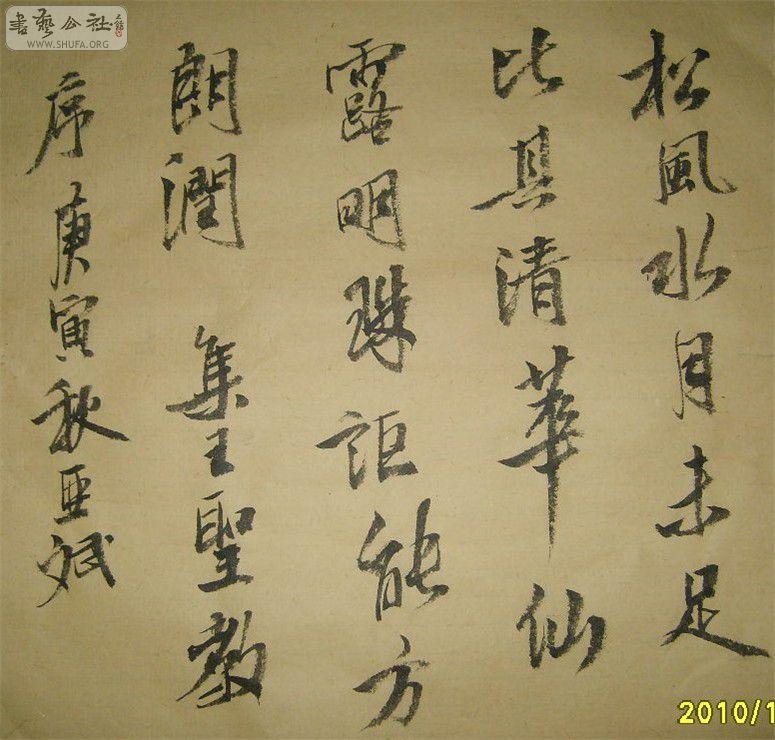 松風水月未足
比其清華仙
露明珠詎能方
朗潤 集王聖教
序 庚寅秋 亞斌
書藝公社
WWW.SHUFA.ORG
2010/1